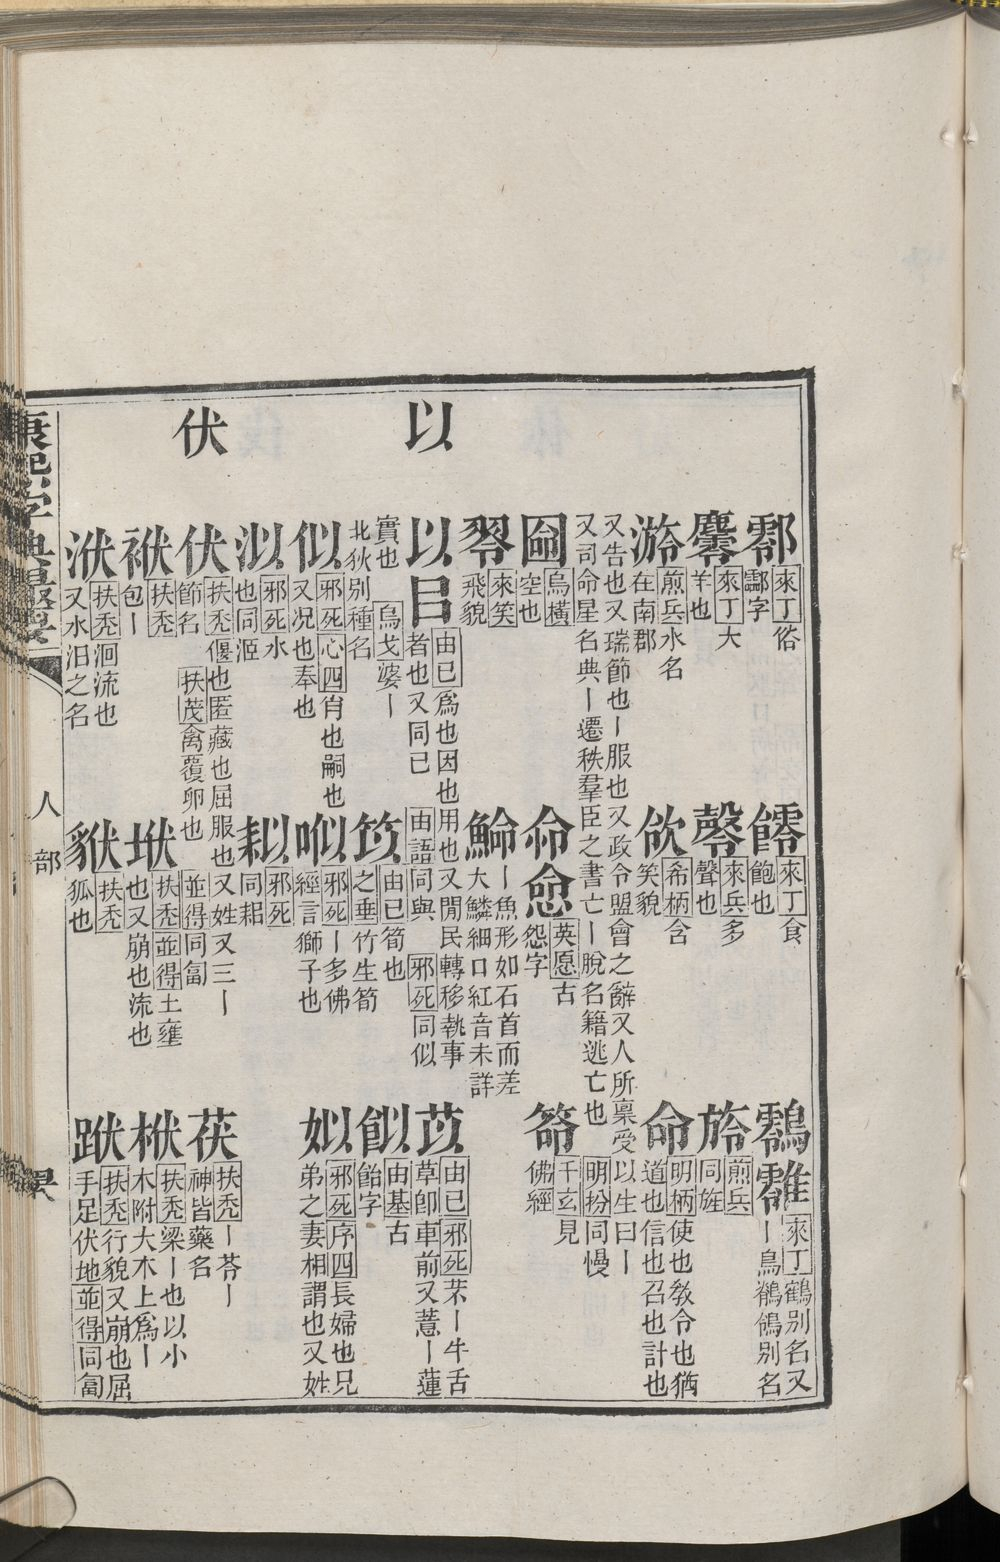 以
伏
酃 來丁俗
酃字
𩜁 來丁食
飽也
鸖䨥 來丁鶴別名又
丨鳥鶺鴒別名
麢 來丁大
羊也
磬 來兵多
聲也
旍 煎兵
同旌
澪 煎兵水名
在南郡
欱 希柄含
笑貌
命 明柄使也敎令也猶
道也信也召也計也
又告也又瑞節也丨服也又政令盟會之辭又人所稟受以生曰丨
又司命星名典丨遷秩羣臣之書亡丨脫名籍逃亡也 明扮同慢
圇 烏橫
空也
命㤪 英愿古
怨字
䇞 千玄見
佛經
翖 來笑
飛貌
鯩 丨魚形如石首而差
大鱗細口紅音未詳
以㠯 由已爲也因也用也又閒民轉移執事
者也又同已 由語同與 邪死同似
苡 由已邪死芣丨牛舌
草卽車前又薏丨蓮
實也 烏戈婆丨
北狄別種名
笖 由已筍也
之垂竹生筍
飴 由基古
飴字
似 邪死心四肖也嗣也
又况也奉也
㕽 邪死丨多佛
經言獅子也
姒 邪死序四長婦也兄
弟之妻相謂也又姓
泤 邪死水
也同洍
耛 邪死
同耜
伏 扶禿偃也匿藏也屈服也又姓又三丨
節名 扶茂禽覆卵也 並得同匐
茯 扶禿丨苓丨
神皆藥名
袱 扶禿
包丨
垘 扶禿並得土壅
也又崩也流也
栿 扶禿梁丨也以小
木附大木上爲丨
洑 扶禿洄流也
又水汨之名
㹇 扶禿
狐也
䟔 扶禿行貌又崩也屈
手足伏地並得同匐
康熙字典撮要
人部